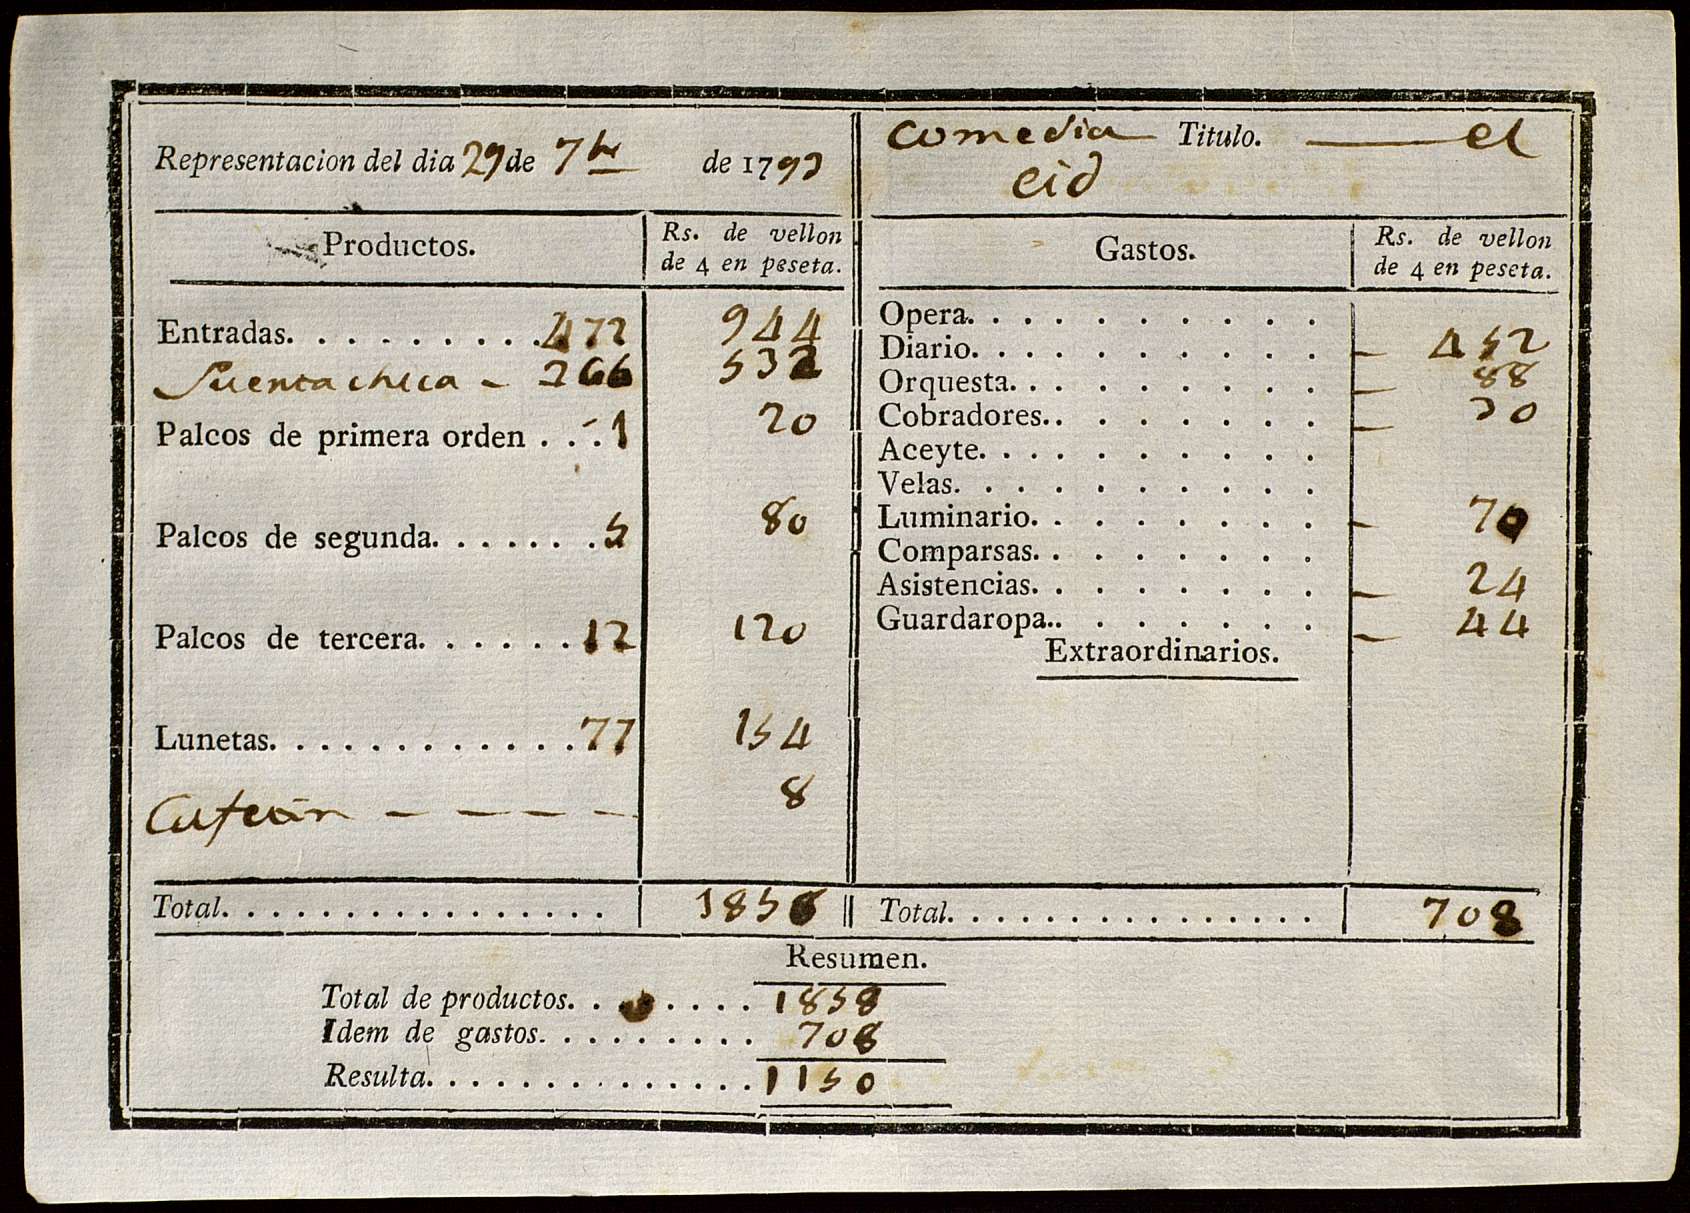 Representacion del dia 29 de 7bre de 1793
Comedia Titulo. el
cid
Productos. Rs. de vellon
de 4 en peseta.
Entradas. 472 944
Puerta chica - 266 532
Palcos de primera orden . . . 1 20
Palcos de segunda. 5 80
Palcos de tercera. 12 120
Lunetas. 77 154
8
Total. 1858
Gastos. Rs. de vellon
de 4 en peseta.
Opera.
Diario. 452
Orquesta. 88
Cobradores.. 30
Aceyte.
Velas.
Luminario. 70
Comparsas.
Asistencias. 24
Guardaropa.. 44
Extraordinarios.
Total. 708
Resumen.
Total de productos. 1858
Idem de gastos. 708
Resulta. 1150